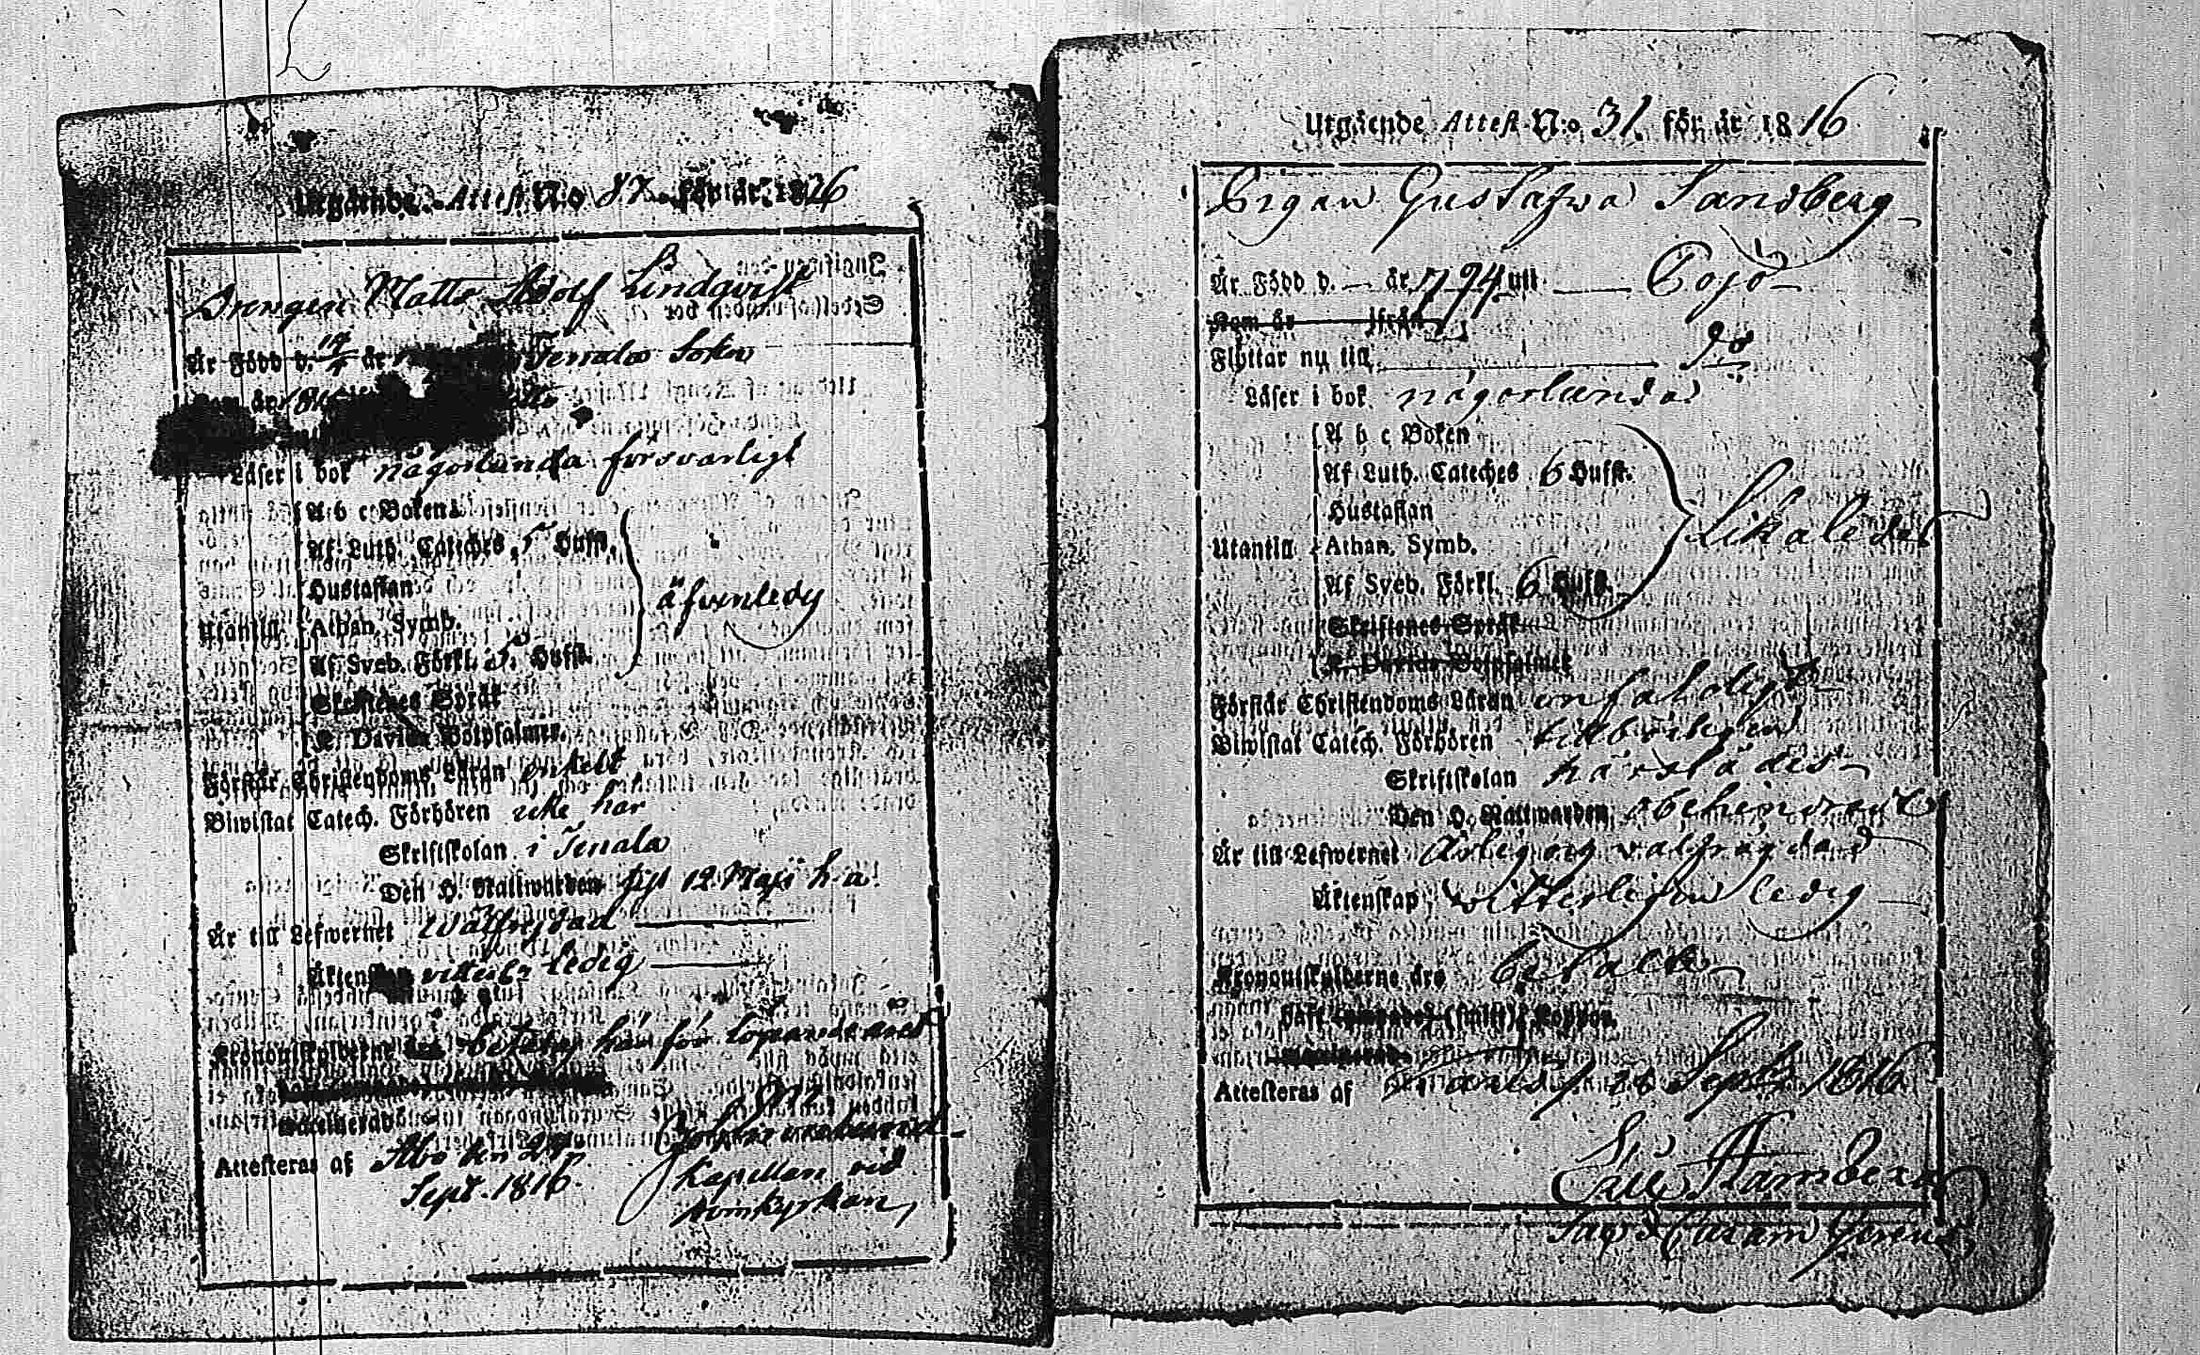 Utgående Attest N:o 87 för år 1816
Drengen Matts Adolf Lindqvist
Är Född d. 19/4 år Tenala Soken
Kom år 181
Läser i bok någorlunda försvarligt
A b c Boken
Af Luth. Cateches 5 Hufst.
Hustaflan
äfvenledes
Utantill Athan. Symb.
Af Sveb. Förkl. 5 Hufst.
Skriftenes Språk
K. Davids Botpsalmer.
Förstår Christendoms Läran enkelt
Biwistat Catech. Förhören icke här
Skriftskolan i Tenala
Den H. Nattwarden sist 12 Maji h. a.
Är till Lefwernet wälfrejdad
Äktenskap ledig
Kronoutskylderne äro betalte här för löpande året
Vaccinerad
Attesteras af Åbo den 27
Sept. 1816.
Kapellan vid
Domkyrkan
Utgående Attest N:o 31. för år 1816
Pigan Gustafva Sandberg
Är Född d. — år 1794 uti Pojo
Kom år ifrån
Flyttar nu till do
Läser i bok någorlunda
A b c Boken
Af Luth. Cateches 6 Hufst.
Hustaflan
Likaledes
Utantill Athan. Symb.
Af Sveb. Förkl. 6 Hufst.
Skriftenes Språk
K. Davids Botpsalmer
Förstår Christendoms Läran enfaldigt
Biwistat Catech. Förhören tillbörligen
Skriftskolan härstädes
Den H. Nattwarden obehindrad
Är till Lefwernet Ärlig og välfrägdad
Äktenskap witterligen ledig
Kronoutskylderne äro betalte
Haft (smitt) Koppor.
Vaccinerad
Attesteras af d. 28 Sept. 1816